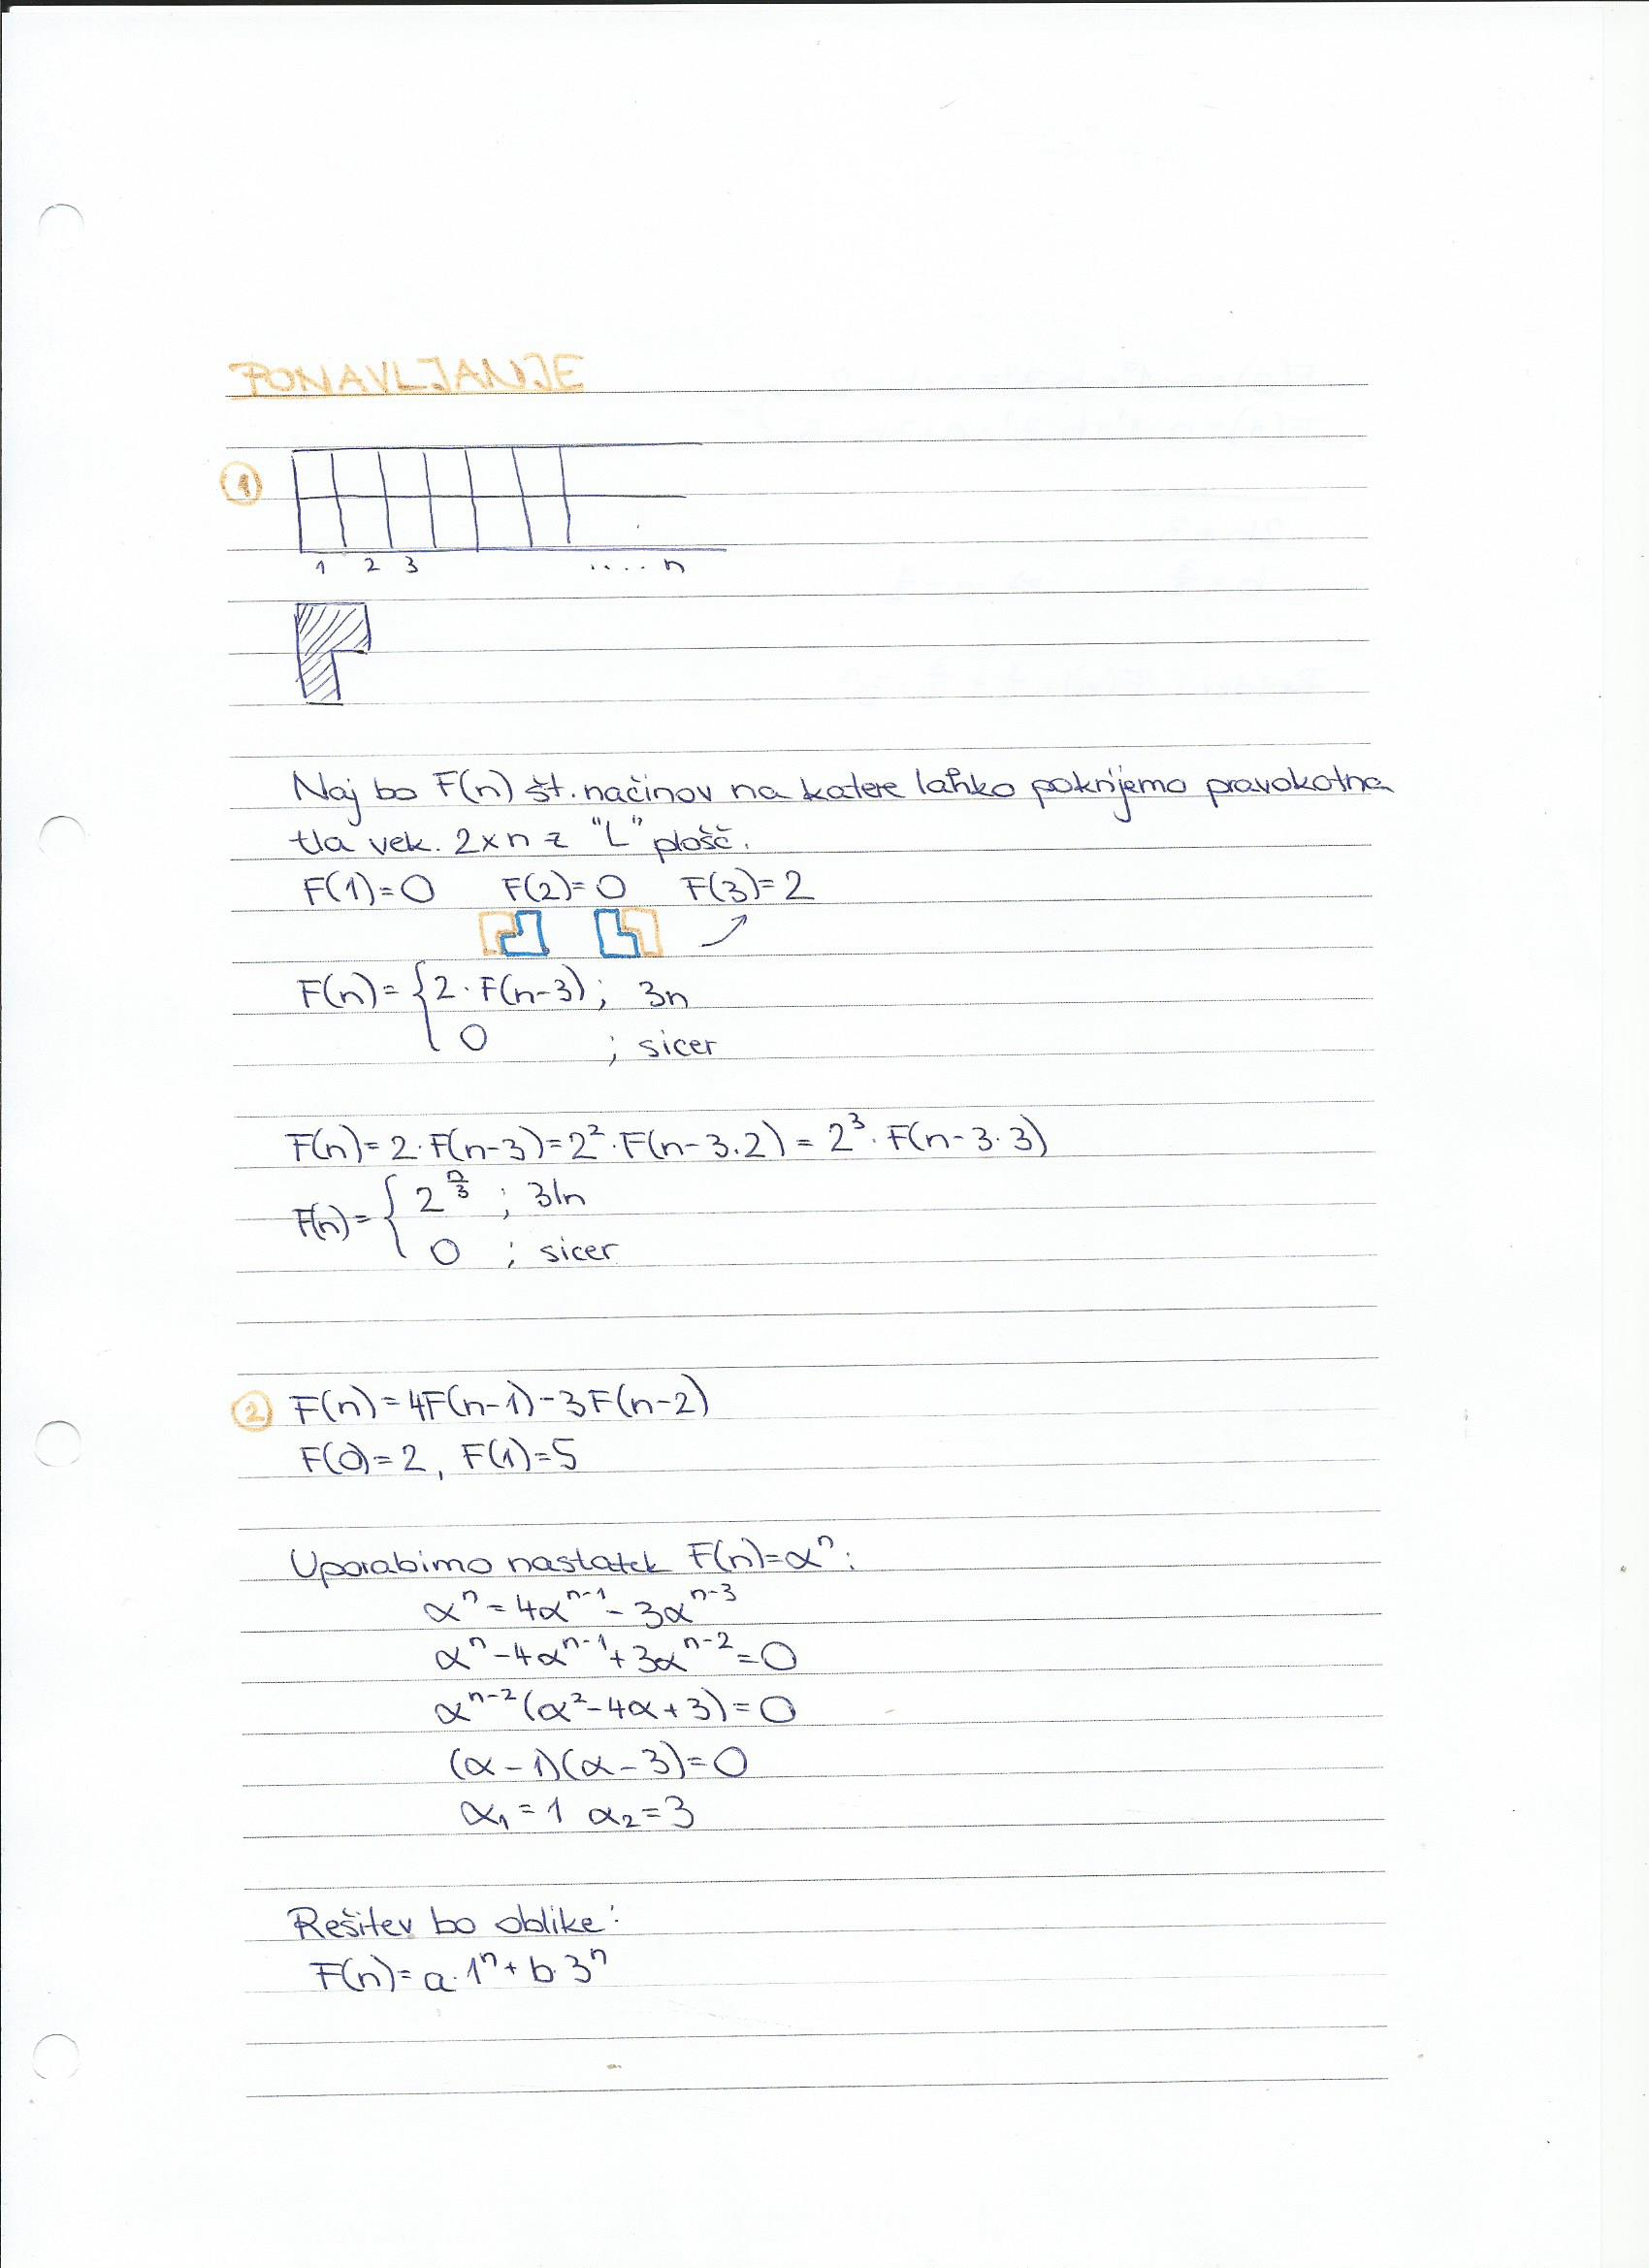 PONAVLJANJE
1
1 2 3 .... n
Naj bo F(n) št. načinov na katere lahko pokrijemo pravokotna
tla vek. 2xn z "L" plošč.
F(1)=0 F(2)=0 F(3)=2
F(n)= { 2·F(n-3); 3n
0 ; sicer
F(n)=2·F(n-3)=2²·F(n-3.2)=2³·F(n-3·3)
F(n)= { 2^(n/3) ; 3|n
0 ; sicer
2 F(n)=4F(n-1)-3F(n-2)
F(0)=2, F(1)=5
Uporabimo nastatek F(n)=α^n:
α^n=4α^(n-1)-3α^(n-3)
α^n-4α^(n-1)+3α^(n-2)=0
α^(n-2)(α²-4α+3)=0
(α-1)(α-3)=0
α₁=1 α₂=3
Rešitev bo oblike:
F(n)=a·1^n+b·3^n